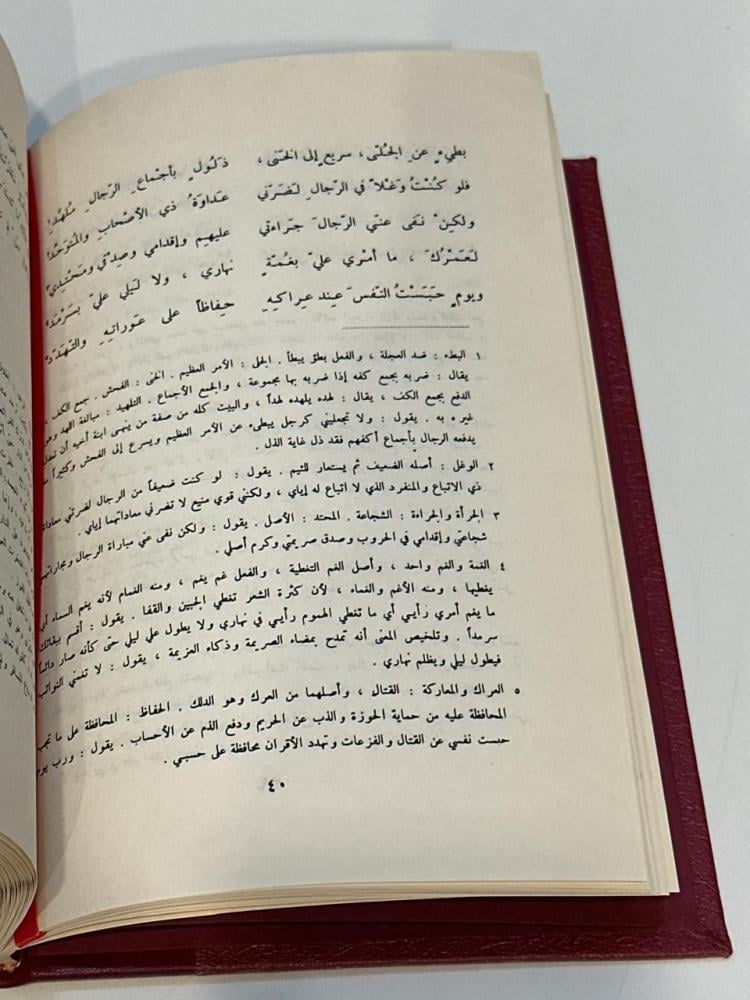 بطيءٍ عنِ الجُلّى ، سريعٍ إلى الخَنى ، ذَلُولٍ بأجماعِ الرّجالِ مُلَهَّدِ
فلو كُنْتُ وَغْلاً في الرّجالِ لَضَرّني عَداوَةُ ذي الأصْحابِ والمُتَوَحِّدِ
ولكِنْ نَفَى عنّي الرّجالَ جَراءَتي عليهِم وإقدامي وصِدْقي ومَحْتِدي
لَعَمْرُكَ ، ما أمْري عليّ بغُمّةٍ نهاري ، ولا لَيلي عليّ بسَرْمَدِ
ويومٍ حَبَسْتُ النّفسَ عِند عِراكِهِ حِفاظاً على عَوراتِهِ والتّهَدّدِ
١ البطء : ضد العجلة ، والفعل بطؤ يبطأ . الجل : الأمر العظيم . الخنى : الفحش . جمع الكف ،
يقال : ضربه بجمع كفه إذا ضربه بها مجموعة ، والجمع الأجماع . التلهيد : مبالغة اللهد وهو
الدفع بجمع الكف ، يقال : لهده يلهده لهداً ، والبيت كله من صفة من ينهى ابنة أخيه أن تعدل
غيره به . يقول : ولا تجعليني كرجل يبطىء عن الأمر العظيم ويسرع إلى الفحش وكثيراً ما
يدفعه الرجال بأجماع أكفهم فقد ذل غاية الذل .
٢ الوغل : أصله الضعيف ثم يستعار للئيم . يقول : لو كنت ضعيفاً من الرجال لضرتني معاداة
ذي الاتباع والمنفرد الذي لا اتباع له إياي ، ولكنني قوي منيع لا تضرني معاداتهما إياي .
٣ الجرأة والجراءة : الشجاعة . المحتد : الأصل . يقول : ولكن نفى عني مباراة الرجال ومجاراتهم
شجاعتي وإقدامي في الحروب وصدق صريمتي وكرم أصلي .
٤ الغمة والغم واحد ، وأصل الغم التغطية ، والفعل غم يغم ، ومنه الغمام لأنه يغم السماء أي
يغطيها ، ومنه الأغم والغماء ، لأن كثرة الشعر تغطي الجبين والقفا . يقول : أقسم ببقائك
ما يغم أمري رأيي أي ما تغطي الهموم رأيي في نهاري ولا يطول علي ليلي حتى كأنه صار دائماً
سرمداً . وتلخيص المعنى أنه تمدح بمضاء الصريمة وذكاء العزيمة ، يقول : لا تغمني النوائب
فيطول ليلي ويظلم نهاري .
٥ العراك والمعاركة : القتال ، وأصلهما من العرك وهو الدلك . الحفاظ : المحافظة على ما تجب
المحافظة عليه من حماية الحوزة والذب عن الحريم ودفع الذم عن الأحساب . يقول : ورب يوم
حبست نفسي عن القتال والفزعات وتهدد الأقران محافظة على حسبي .
٤٠